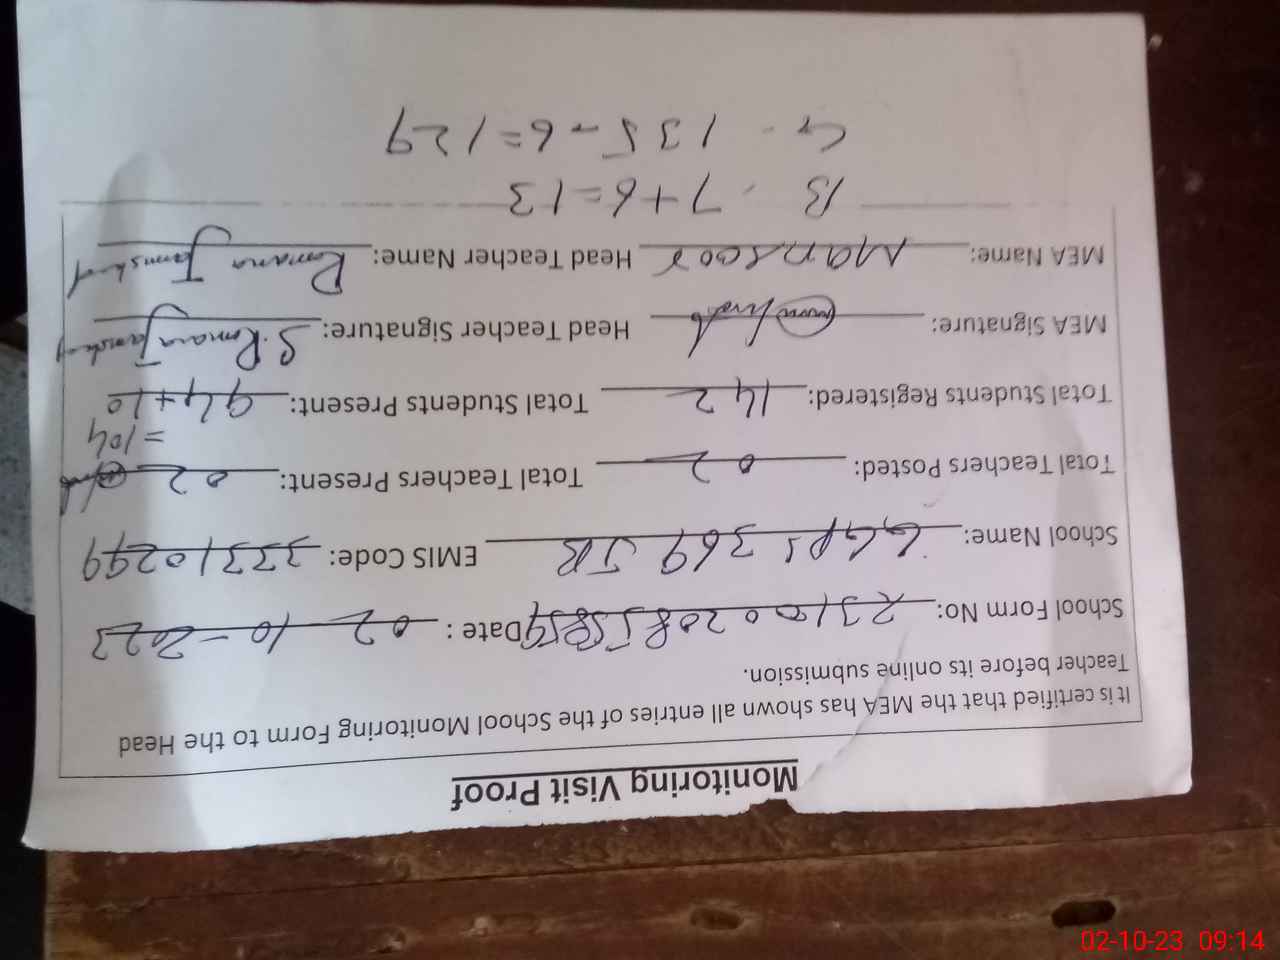 Monitoring Visit Proof
It is certified that the MEA has shown all entries of the School Monitoring Form to the Head
Teacher before its online submission.
School Form No: Date : 02 10-2023
School Name: GGPS 369 JB EMIS Code: 33310299
Total Teachers Posted: 02 Total Teachers Present: 02
Total Students Registered: 142 Total Students Present: 94+10
=104
MEA Signature: Head Teacher Signature: S.Romana Jamshed
MEA Name: Mansoor Head Teacher Name: Romana Jamshed
B - 7+6=13
G - 135-6=129
02-10-23 09:14